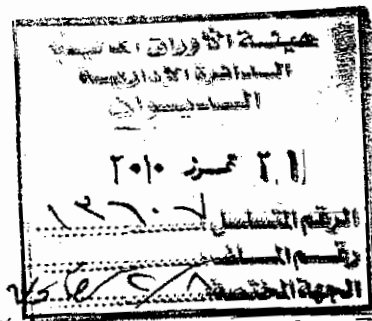 هيئة الأوراق المالية
الدائرة الادارية
الديوان
٢١ تموز ٢٠١٠
الرقم المتسلسل ١٣٦٠٧
رقم الملف
الجهة المختصة